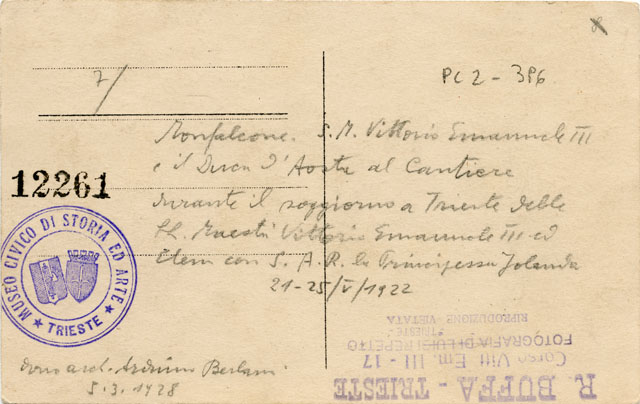 8
7/
PC 2 - 396
Monfalcone. S. M. Vittorio Emanuele III
e il Duca d'Aosta al Cantiere
durante il soggiorno a Trieste delle
Ll. Maestà Vittorio Emanuele III ed
Elena con S. A. R. la Principessa Jolanda
21-25/V/1922
12261
MUSEO CIVICO DI STORIA ED ARTE
★ TRIESTE ★
dono arch. Arduino Berlam
5.3.1928
R. BUFFA - TRIESTE
Corso Vitt. Em. III - 17
FOTOGRAFIA DI LUIGI REPETTO
TRIESTE
RIPRODUZIONE VIETATA